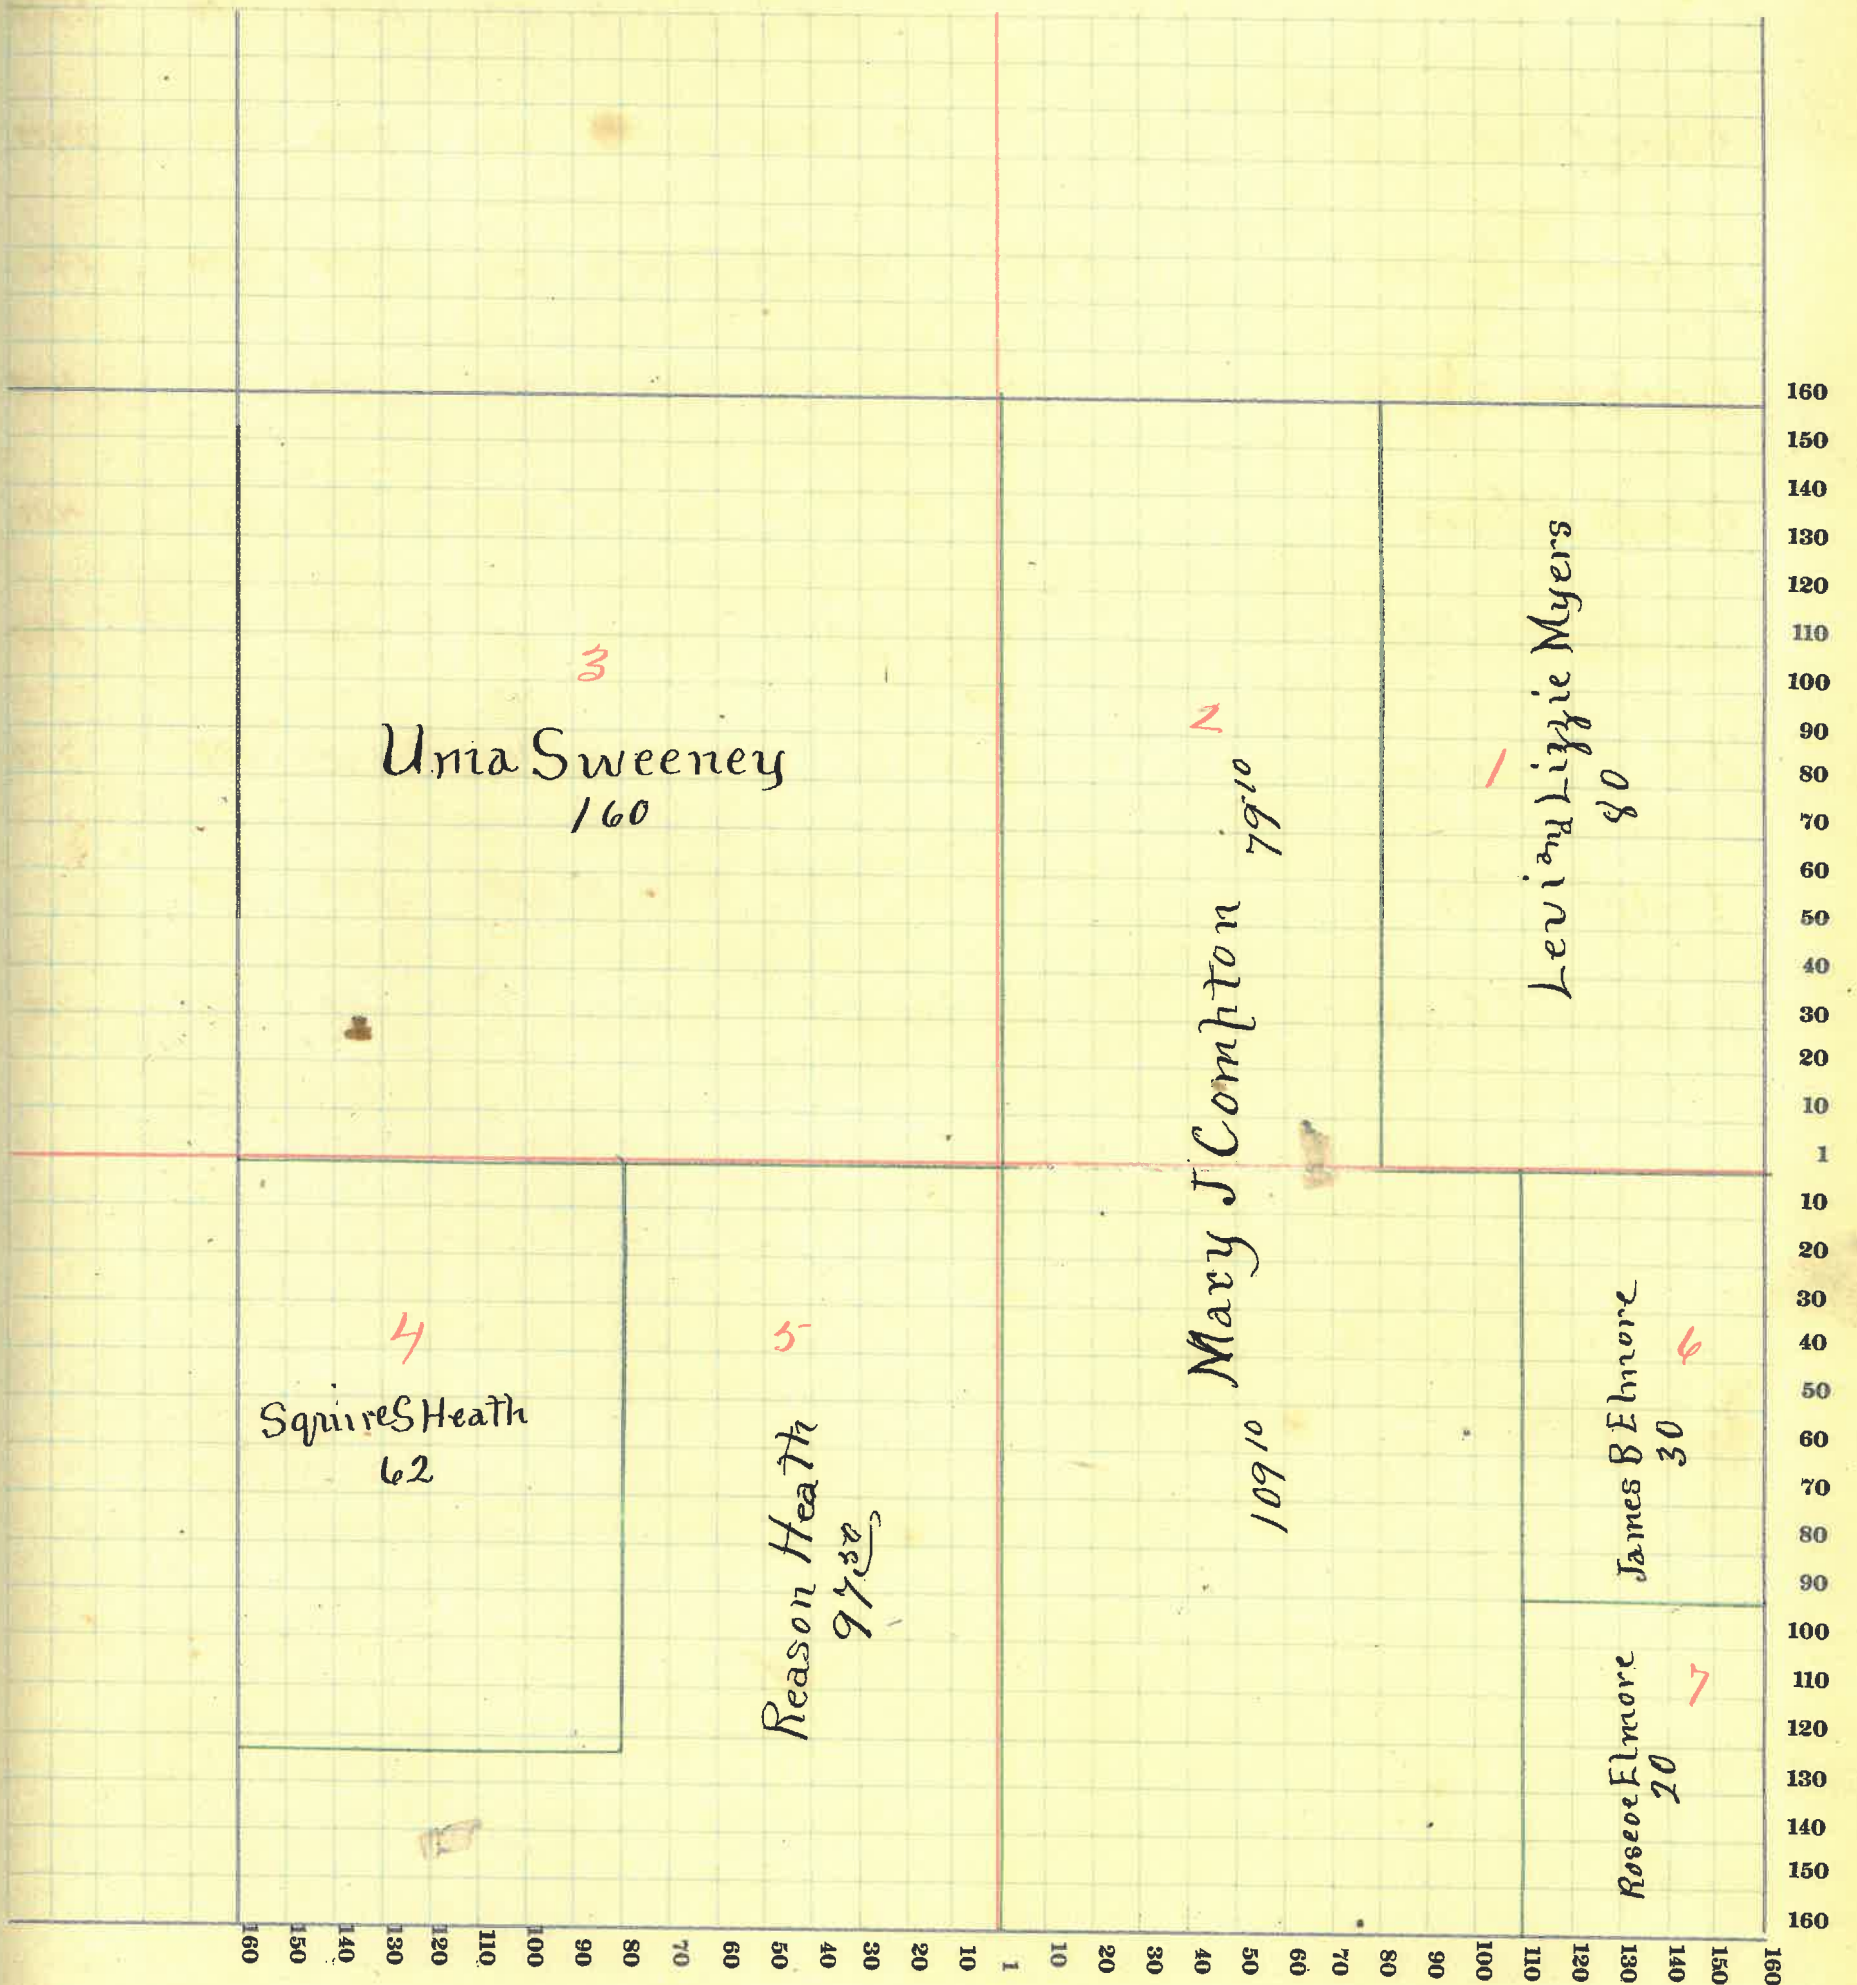 3
Uma Sweeney
160
2
Mary J Compton
79 10
109 10
1
Levi and Lizzie Myers
80
4
Squire S Heath
62
5
Reason Heath
97.50
6
James B Elmore
30
7
Roscoe Elmore
20
160
150
140
130
120
110
100
90
80
70
60
50
40
30
20
10
1
10
20
30
40
50
60
70
80
90
100
110
120
130
140
150
160
160 150 140 130 120 110 100 90 80 70 60 50 40 30 20 10 1 10 20 30 40 50 60 70 80 90 100 110 120 130 140 150 160